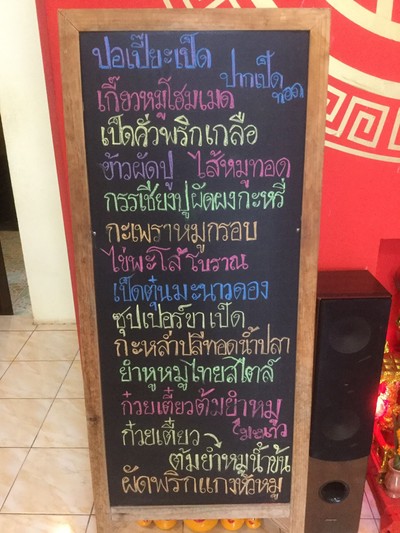 ปอเปี๊ยะเป็ด
ปากเป็ดทอด
เกี๊ยวหมูโฮมเมด
เป็ดคั่วพริกเกลือ
ข้าวผัดปู ไส้หมูทอด
กรรเชียงปูผัดผงกะหรี่
กะเพราหมูกรอบ
ไข่พะโล้โบราณ
เป็ดตุ๋นมะนาวดอง
ซุปเปอร์ขาเป็ด
กะหล่ำปลีทอดน้ำปลา
ยำหูหมูไทยสไตล์
ก๋วยเตี๋ยวต้มยำหมู
ก๋วยเตี๋ยว
ต้มยำหมูน้ำข้น
ผัดพริกแกงหัวหมู